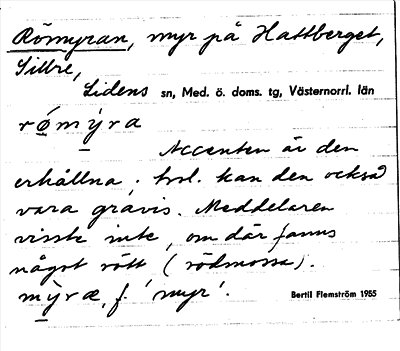 Römyran, myr på Hattberget,
Sillre,
Lidens sn, Med. ö. doms. tg, Västernorrl. län
rö́mỳra
Accenten är den
erhållna; trol. kan den också
vara gravis. Meddelaren
visste inte, om där fanns
något rött (rödmossa).
mỳræ, f. 'myr'.
Bertil Flemström 1955